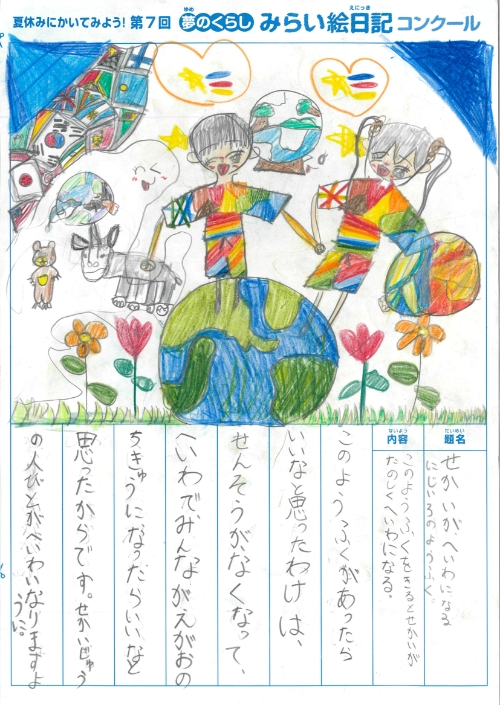 夏休みにかいてみよう！第7回 夢のくらし みらい絵日記コンクール
ゆめ
えにっき
だいめい
題名
せかいが、へいわになる
にじいろのようふく。
ないよう
内容
このようふくをきるとせかいが
たのしくへいわになる。
このようふくがあったら
いいなと思ったわけは、
せんそうがなくなって、
へいわでみんながえがおの
ちきゅうになったらいいなと
思ったからです。せかいじゅう
の人びとがへいわいなりますよ
うに。